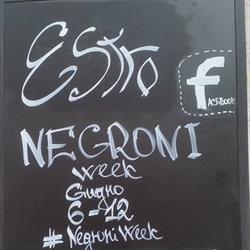 Estro
f
FACEBOOK
NEGRONI
week
Giugno
6-12
#NegroniWeek